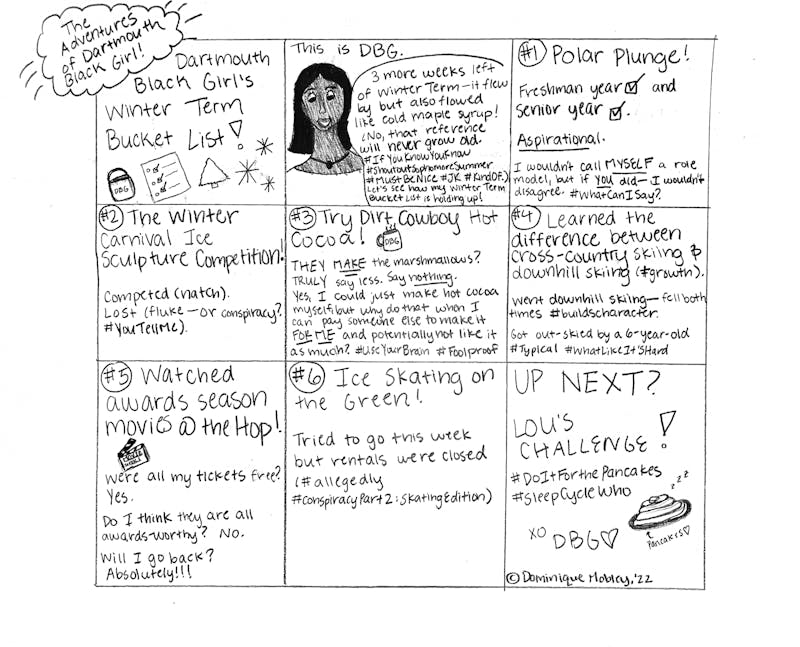 The
Adventures
of Dartmouth
Black Girl!
Dartmouth
Black Girl's
Winter Term
Bucket List!
DBG
This is DBG.
3 more weeks left
of Winter Term—it flew
by but also flowed
like cold maple syrup!
(No, that reference
will never grow old.
#IfYouKnowYouKnow
#ShoutoutSophomoreSummer
#MustBeNice #JK #KindOf.)
Let's see how my Winter Term
Bucket List is holding up!
#1 Polar Plunge!
Freshman year ☑ and
senior year ☑.
Aspirational.
I wouldn't call MYSELF a role
model, but if YOU did—I wouldn't
disagree. #WhatCanISay?
#2 The Winter
Carnival Ice
Sculpture Competition!
Competed (natch).
Lost (fluke—or conspiracy?
#YouTellMe).
#3 Try Dirt Cowboy Hot
Cocoa!
DBG
THEY MAKE the marshmallows?
TRULY say less. Say nothing.
Yes, I could just make hot cocoa
myself but why do that when I
can pay someone else to make it
FOR ME and potentially not like it
as much? #UseYourBrain #Foolproof
#4 Learned the
difference between
cross-country skiing &
downhill skiing (#growth).
Went downhill skiing—fell both
times #buildscharacter.
Got out-skied by a 6-year-old
#Typical #WhatLikeIt'sHard
#5 Watched
awards season
movies @ the Hop!
Were all my tickets free?
Yes.
Do I think they are all
awards-worthy? No.
Will I go back?
Absolutely!!!
#6 Ice Skating on
the Green!
Tried to go this week
but rentals were closed
(#allegedly
#ConspiracyPart2:SkatingEdition)
UP NEXT?
LOU'S
CHALLENGE!
#DoItForthePancakes
#SleepCycleWho
zzz
Pancakes♡
XO
DBG♡
© Dominique Mobley, '22